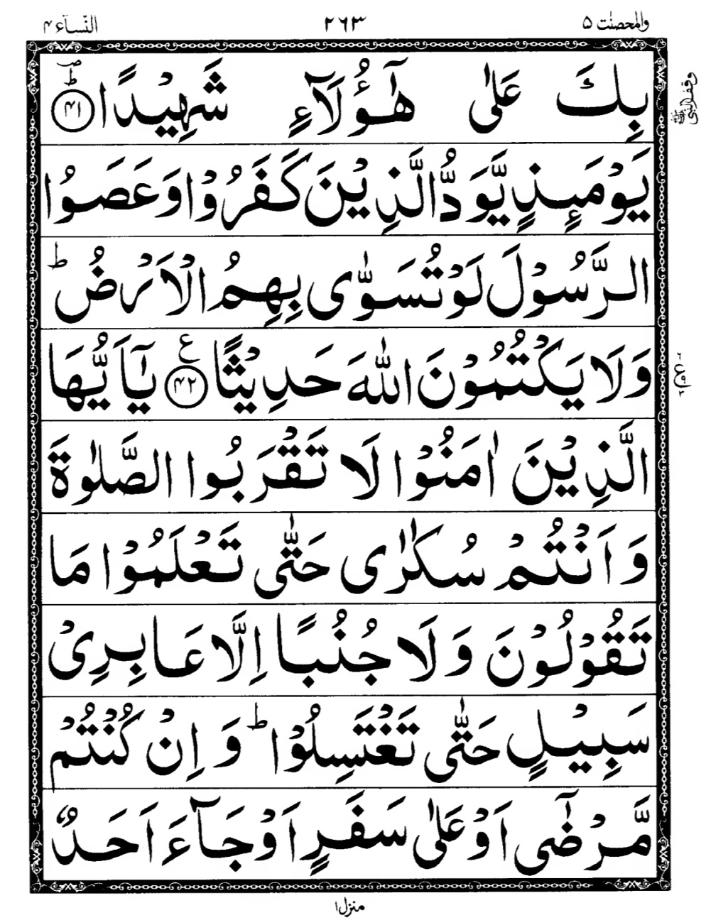 والمحصنٰت ۵ ۲۶۳ النسآء ۴
بِكَ عَلٰى هٰٓؤُلَآءِ شَهِيْدًاؕ ﴿۴۱﴾
يَوْمَئِذٍ يَّوَدُّ الَّذِيْنَ كَفَرُوْا وَعَصَوُا
الرَّسُوْلَ لَوْ تُسَوّٰى بِهِمُ الْاَرْضُؕ
وَلَا يَكْتُمُوْنَ اللّٰهَ حَدِيْثًا ﴿۴۲﴾ ع يٰٓاَيُّهَا
الَّذِيْنَ اٰمَنُوْا لَا تَقْرَبُوا الصَّلٰوةَ
وَاَنْتُمْ سُكٰرٰى حَتّٰى تَعْلَمُوْا مَا
تَقُوْلُوْنَ وَلَا جُنُبًا اِلَّا عَابِرِىْ
سَبِيْلٍ حَتّٰى تَغْتَسِلُوْاؕ وَاِنْ كُنْتُمْ
مَّرْضٰٓى اَوْ عَلٰى سَفَرٍ اَوْ جَآءَ اَحَدٌ
منزل ۱